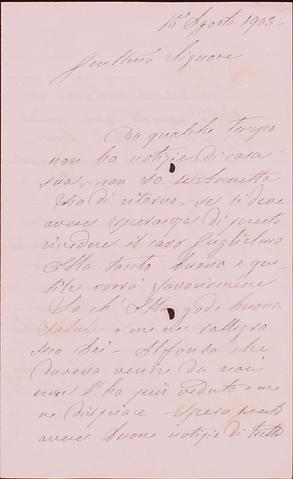 15 Agosto 1903
Gentilmo Signore
Da qualche tempo
non ho notizie di casa
sua, non so se Annetta
sia di ritorno, se si deve
avere speranza di presto
rivedere il caro Guglielmo
Ella tanto buona e gen
tile vorrà favorirmene
So ch' Ella gode buona
salute e me ne rallegro
con Lei - Alfonso che
doveva venire da noi
non l'ho più veduto e me
ne dispiace - spero presto
avere buone notizie di tutto